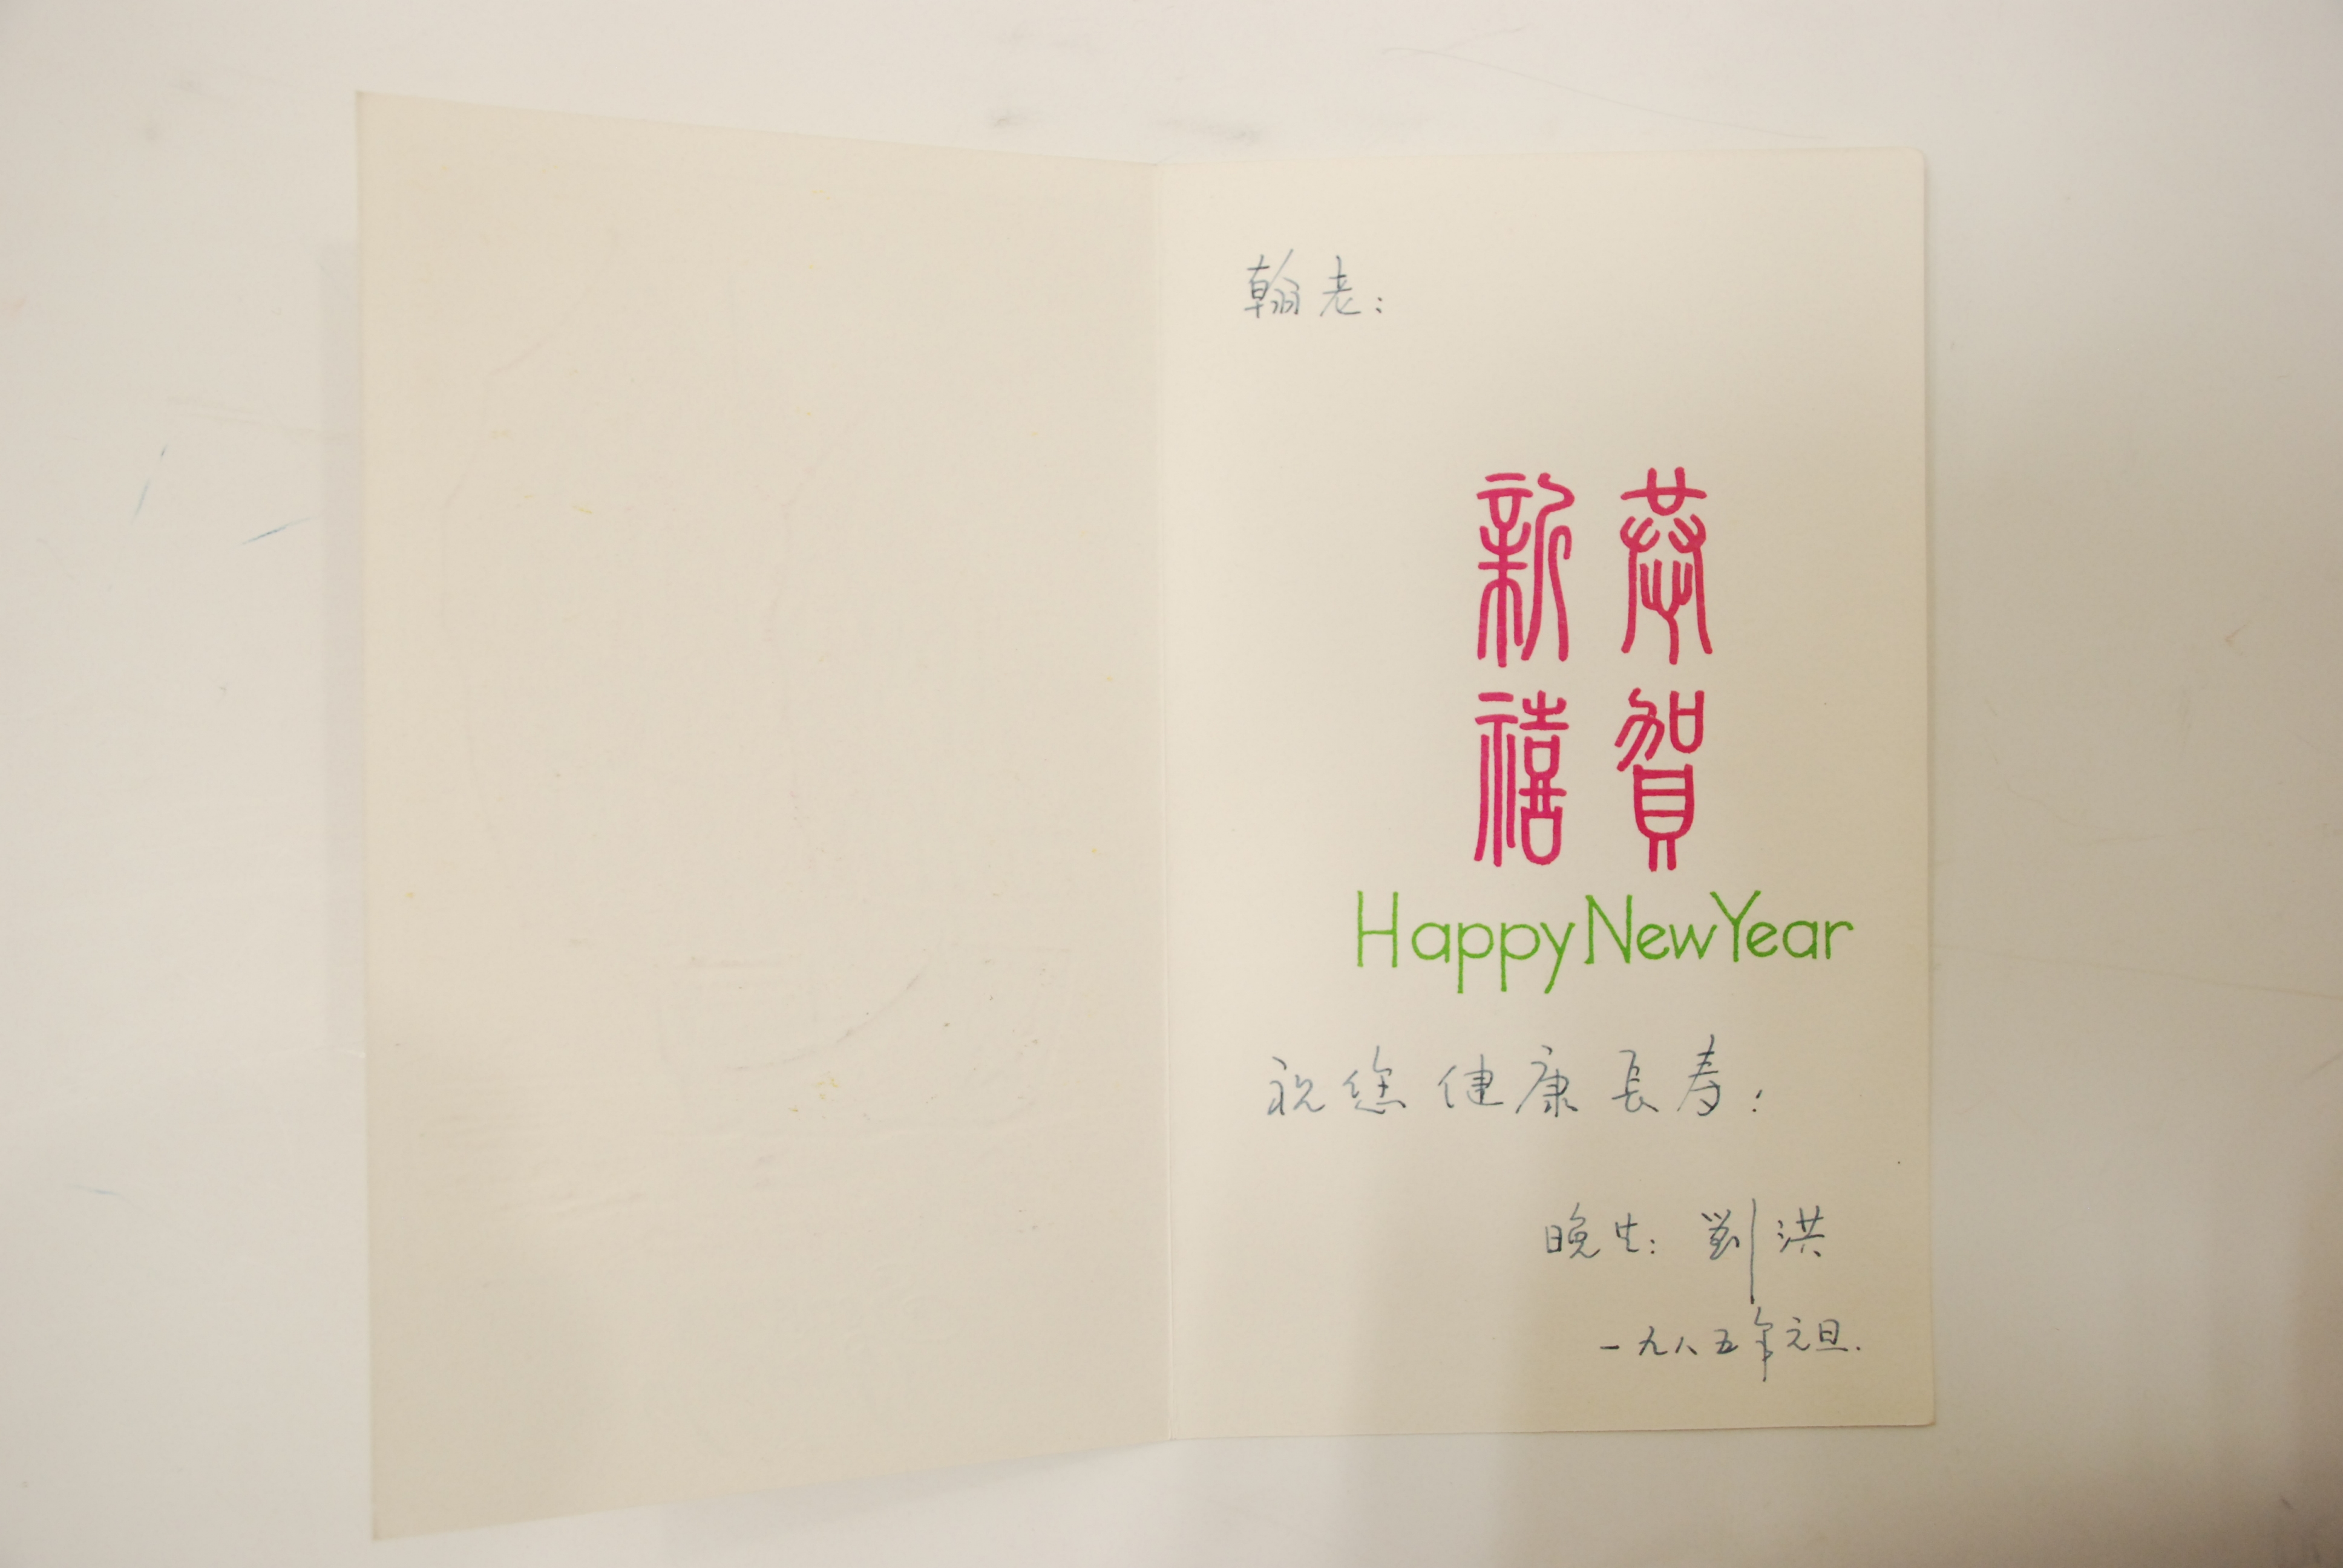 翰老：
恭賀
新禧
Happy New Year
祝您健康長寿！
晚生：劉洪
一九八五年元旦.